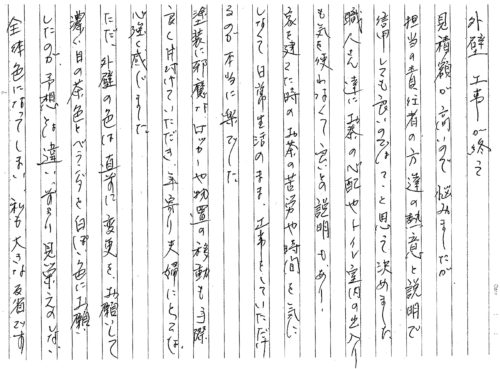 外壁工事が終えて
見積額が高いので悩みましたが
担当の責任者の方達の熱意と説明で
信用しても良いのでは、と思って決めました
職人さん達にお茶の心配やトイレ室内の出入り
も気を使わなくて良いとの説明もあり、
家を建てた時のお茶の苦労や時間を気に
しなくて日常生活のまま、工事をしていただけ
るのが本当に楽でした
塗装に邪魔なロッカーや物置の移動も手際
良く片付けていただき、年寄り夫婦にとっては
心強く感じました
ただ、外壁の色は直前に変更を、お願いして
濃い目の茶色とベランダを白っぽい色にお願い
したのが、予想とは違い、前より見栄えのしない
全体色になってしまい、私も大きな反省です